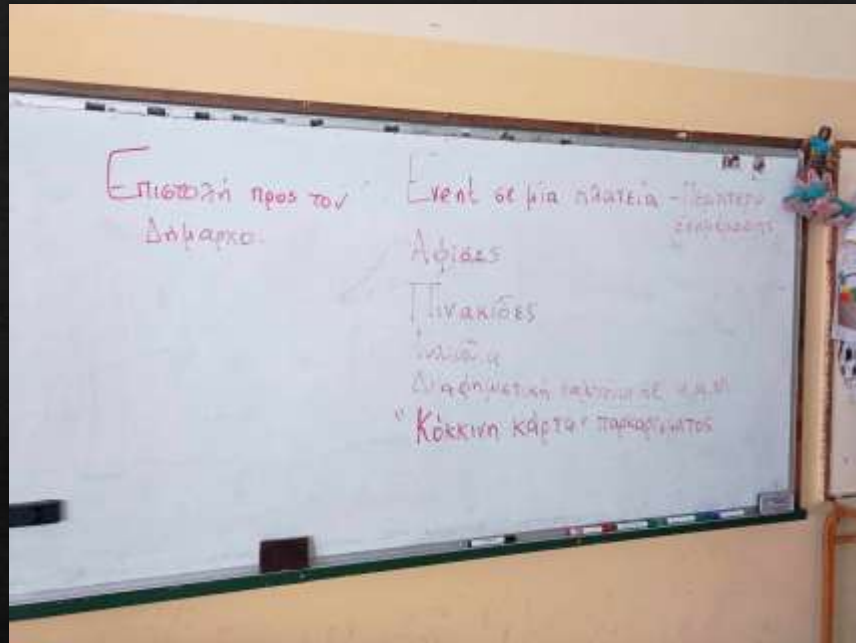 Επιστολή προς τον
Δήμαρχο.
Event σε μία πλατεία -
Αφίσες
Πινακίδες
Διαφημιστική
"Κόκκινη κάρτα" παρκαρίσματος